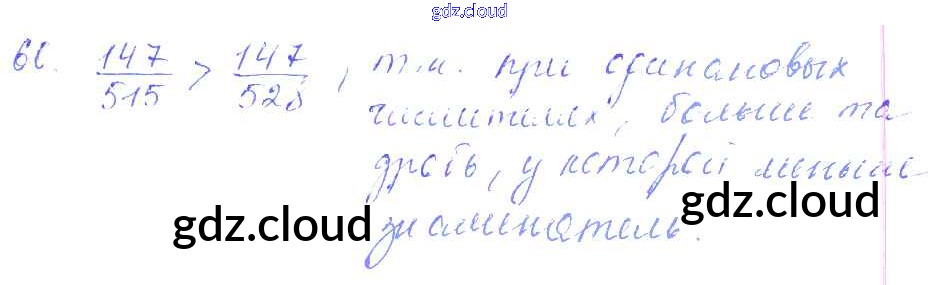 gdz.cloud
147/515 > 147/528, т.к. при одинаковых
числителях, больше та
дробь, у которой меньше
знаменатель.
gdz.cloud
gdz.cloud